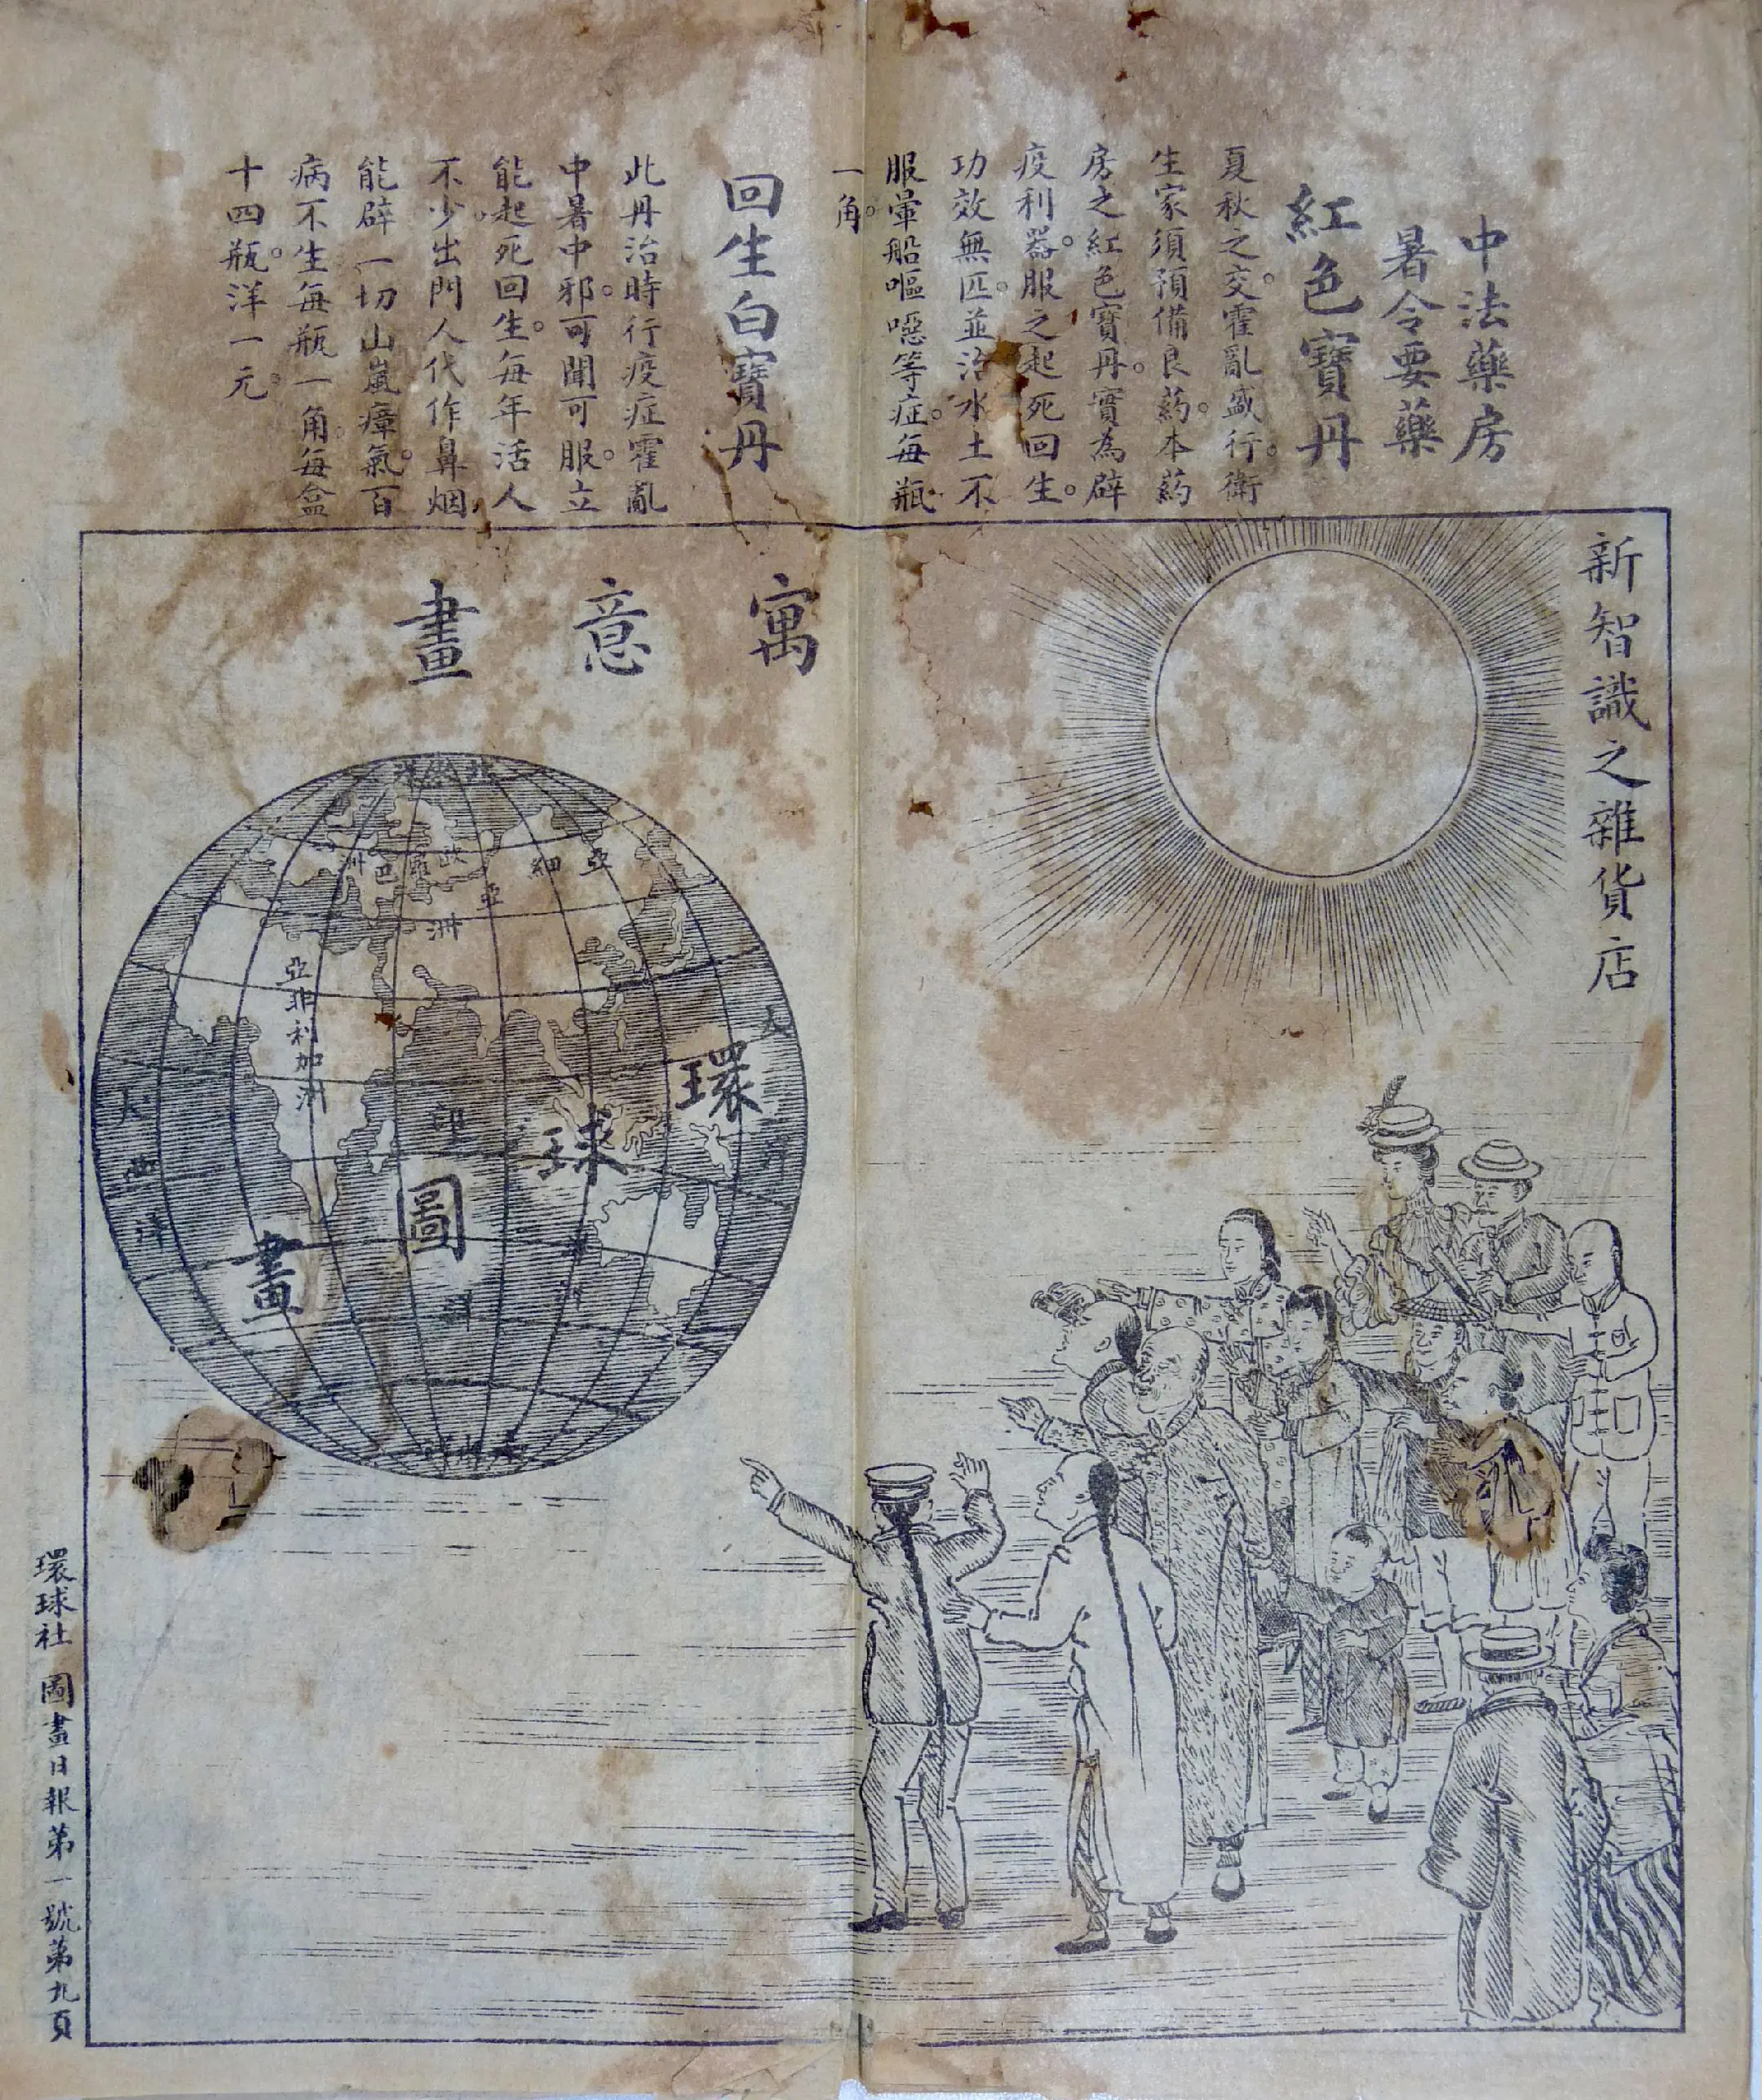 中法藥房
暑令要藥
紅色寶丹
夏秋之交。霍亂盛行。衛
生家須預備良葯。本葯
房之紅色寶丹。實為辟
疫利器。服之起死回生。
功效無匹。並治水土不
服暈船嘔噁等症。每瓶
一角。
回生白寶丹
此丹治時行疫症霍亂
中暑中邪。可聞可服。立
能起死回生。每年活人
不少。出門人代作鼻烟
能辟一切山嵐瘴氣。百
病不生。每瓶一角。每盒
十四瓶。洋一元。
新智識之雜貨店
寓意畫
環球圖畫
亞細亞洲
歐羅巴洲
亞非利加洲
大西洋
印
環球社 圖畫日報第一號第九頁